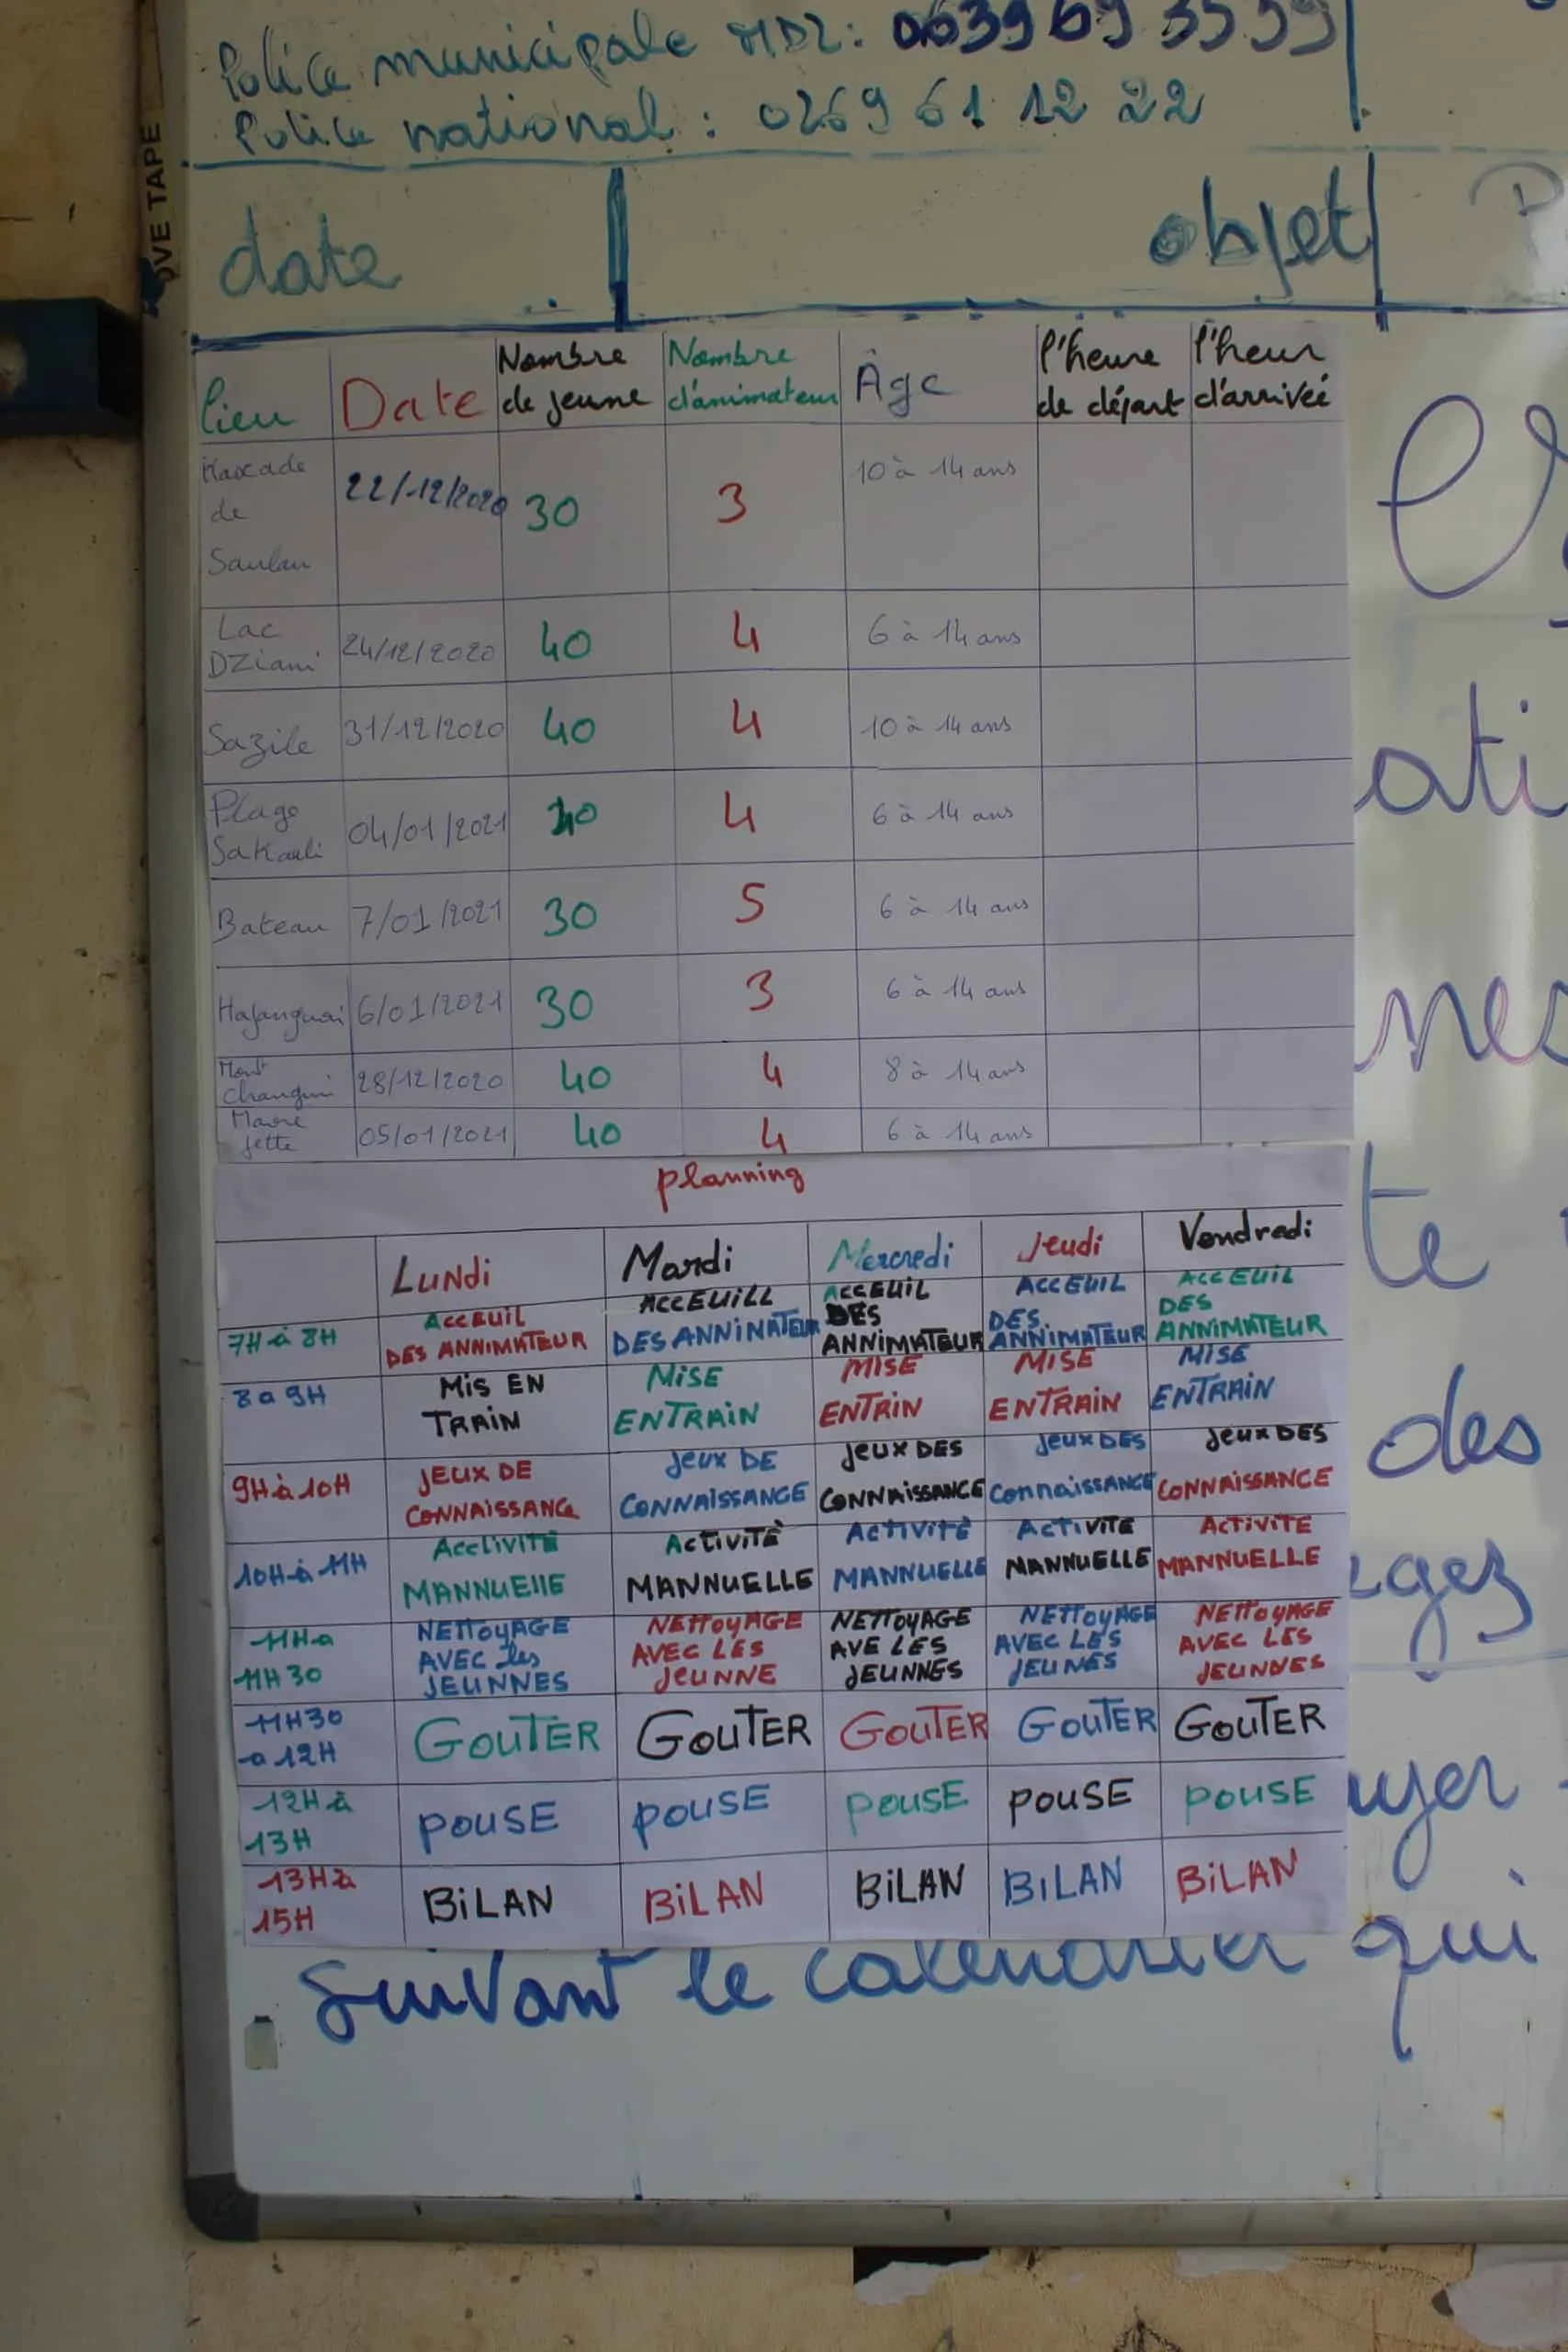 Police municipale MDZ: 0639 69 35 59
Police national : 0269 61 12 22
OVE TAPE
date objet P
lieu Date Nombre de jeune Nombre d'animateur Âge l'heure de départ l'heur d'arriveé
Kascade de Saulou 22/12/2020 30 3 10 à 14 ans
Lac DZiani 24/12/2020 40 4 6 à 14 ans
Sazile 31/12/2020 40 4 10 à 14 ans
Plage Sakouli 04/01/2021 40 4 6 à 14 ans
Bateau 7/01/2021 30 5 6 à 14 ans
Hajangua 6/01/2021 30 3 6 à 14 ans
Mont 28/12/2020 40 4 8 à 14 ans
05/01/2021 40 4 6 à 14 ans
planning
LUNdi Mardi Mercredi Jeudi Vendredi
7H à 8H AccEUiL DES ANNIMATEUR ACCEUiLL DES ANNiNATEUR ACCEUiL DES ANNiMATEUR ACCEUIL DES ANNiMATEUR ACCEUiL DES ANNiMATEUR
8 a 9H Mis EN TRAiN MiSE ENTRAiN MISE ENTRiN MISE ENTRAiN MISE ENTRAiN
9H à 10H JEUX DE CONNAiSSANCE JEUX DE CONNAISSANCE JEUX DES CONNAiSSANCE JEUX DES Connaissance JEUX DES CONNAiSSANCE
10H à 11H AcctiViTÉ MANNUEllE ActiViTÉ MANNUELLE ActiViTÉ MANNUELLE ActiVITE MANNUELLE ActiViTE MANNUELLE
11H a 11H30 NETToyAGE AVEC les JEUNNES NETToyAGE AVEC LES JEUNNE NETToyAGE AVE LES JEUNNES NETToyAGE AVEC LES JEUNES NETToyAGE AVEC LES JEUNNES
11H30 a 12H GOUTER GOUTER GOUTER GOUTER GOUTER
12H à 13H POUSE POUSE POUSE POUSE POUSE
13H à 15H BiLAN BiLAN BiLAN BiLAN BiLAN
ati
nes
te
des
gez
uyer
Suivant le calendrier qui